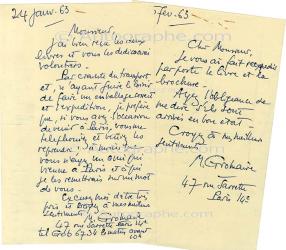 24 Janv. 63
Monsieur,
J'ai bien reçu les deux
livres et vous les dédicacerai
volontiers.
Par crainte du transport
et n'ayant guère le loisir
de faire un emballage
et l'expédition, je préfère
que, si vous avez l'occasion
de venir à Paris, vous me
téléphoniez, et veniez les
reprendre. À moins que
vous n'ayez un ami qui
vienne à Paris et à qui
je les remettrais sur un mot
de vous.
Excusez-moi
et croyez à mes meilleurs
sentiments. M. Gromaire
47 rue Jarrette
tel 6734 matin avant
10h
fev. 63
Cher Monsieur,
Je vous ai fait
par poste le livre et la
brochure.
Ayez l'obligeance de
me dire s'ils sont
arrivés en bon état
Croyez à mes meilleurs
sentiments.
M. Gromaire
47 rue Jarrette
Paris 14e